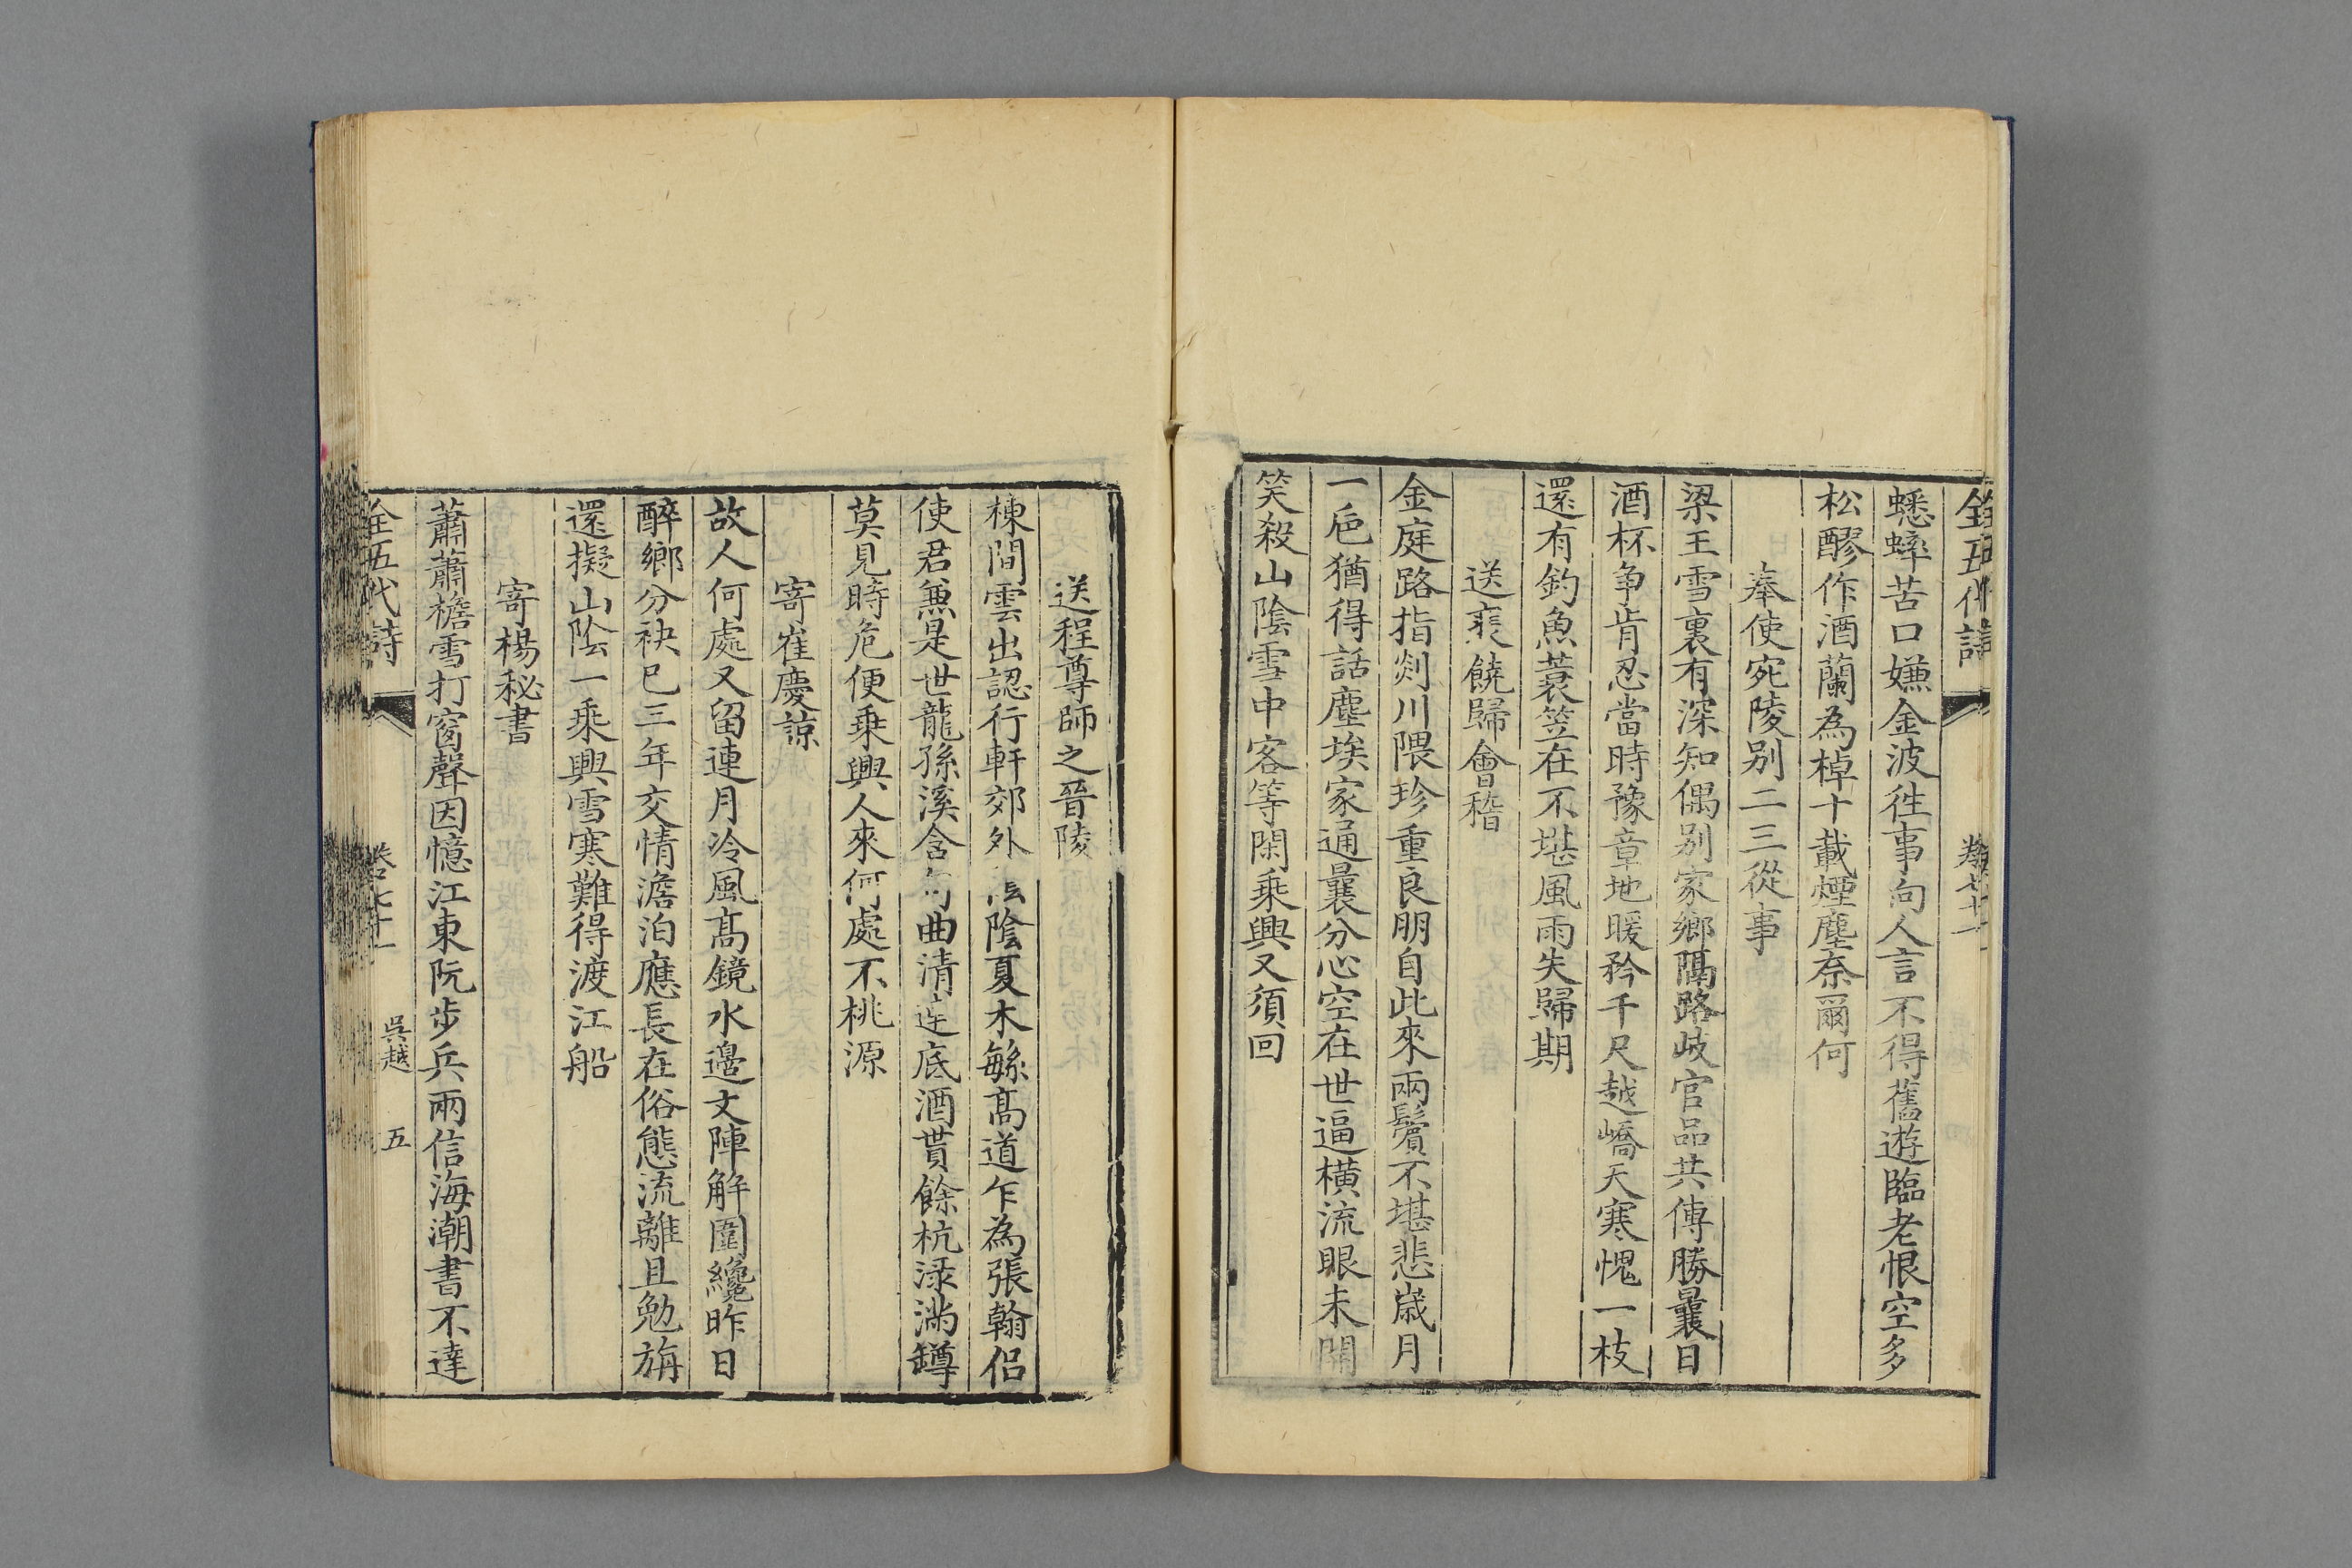 全五代詩
蟋蟀苦口嫌金波徃事向人言不得舊遊臨老恨空多
松醪作酒蘭為棹十載煙塵奈爾何
奉使宛陵别二三從事
梁王雪裏有深知偶别家鄉隔路岐官品共傳勝曩日
酒杯争肯忍當時豫章地暖矜千尺越嶠天寒愧一枝
還有釣魚蓑笠在不堪風雨失歸期
送裴饒歸會稽
金庭路指剡川隈珍重良朋自此來兩鬢不堪悲歲月
一巵猶得話塵埃家通曩分心空在世逼橫流眼未開
笑殺山陰雪中客等閑乘興又須回
送程尊師之晉陵
棟間雲出認行軒郊外陰夏木緐髙道乍為張翰侣
使君兼是世龍孫溪含句曲清連底酒貰餘杭渌滿罇
莫見時危便乗興人來何處不桃源
寄崔慶諒
故人何處又留連月冷風髙鏡水邊文陣解圍纔昨日
醉鄉分袂已三年交情澹泊應長在俗態流離且勉旃
還擬山陰一乘興雪寒難得渡江船
寄楊秘書
蕭蕭檐雪打窗聲因憶江東阮步兵兩信海潮書不達
全五代詩
卷七十一
吳越
五